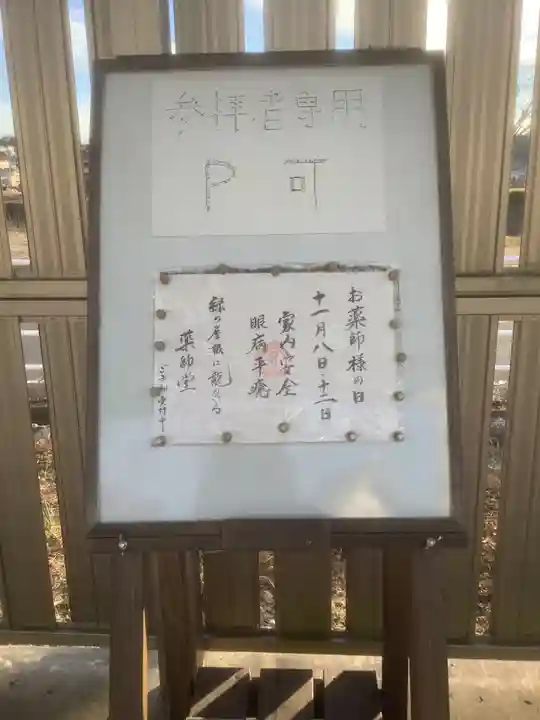 参拝者専用
P 可
お薬師様の日
十一月八日・十二日
家内安全
眼病平癒
緑の屋根に龍の
薬師堂
受付中